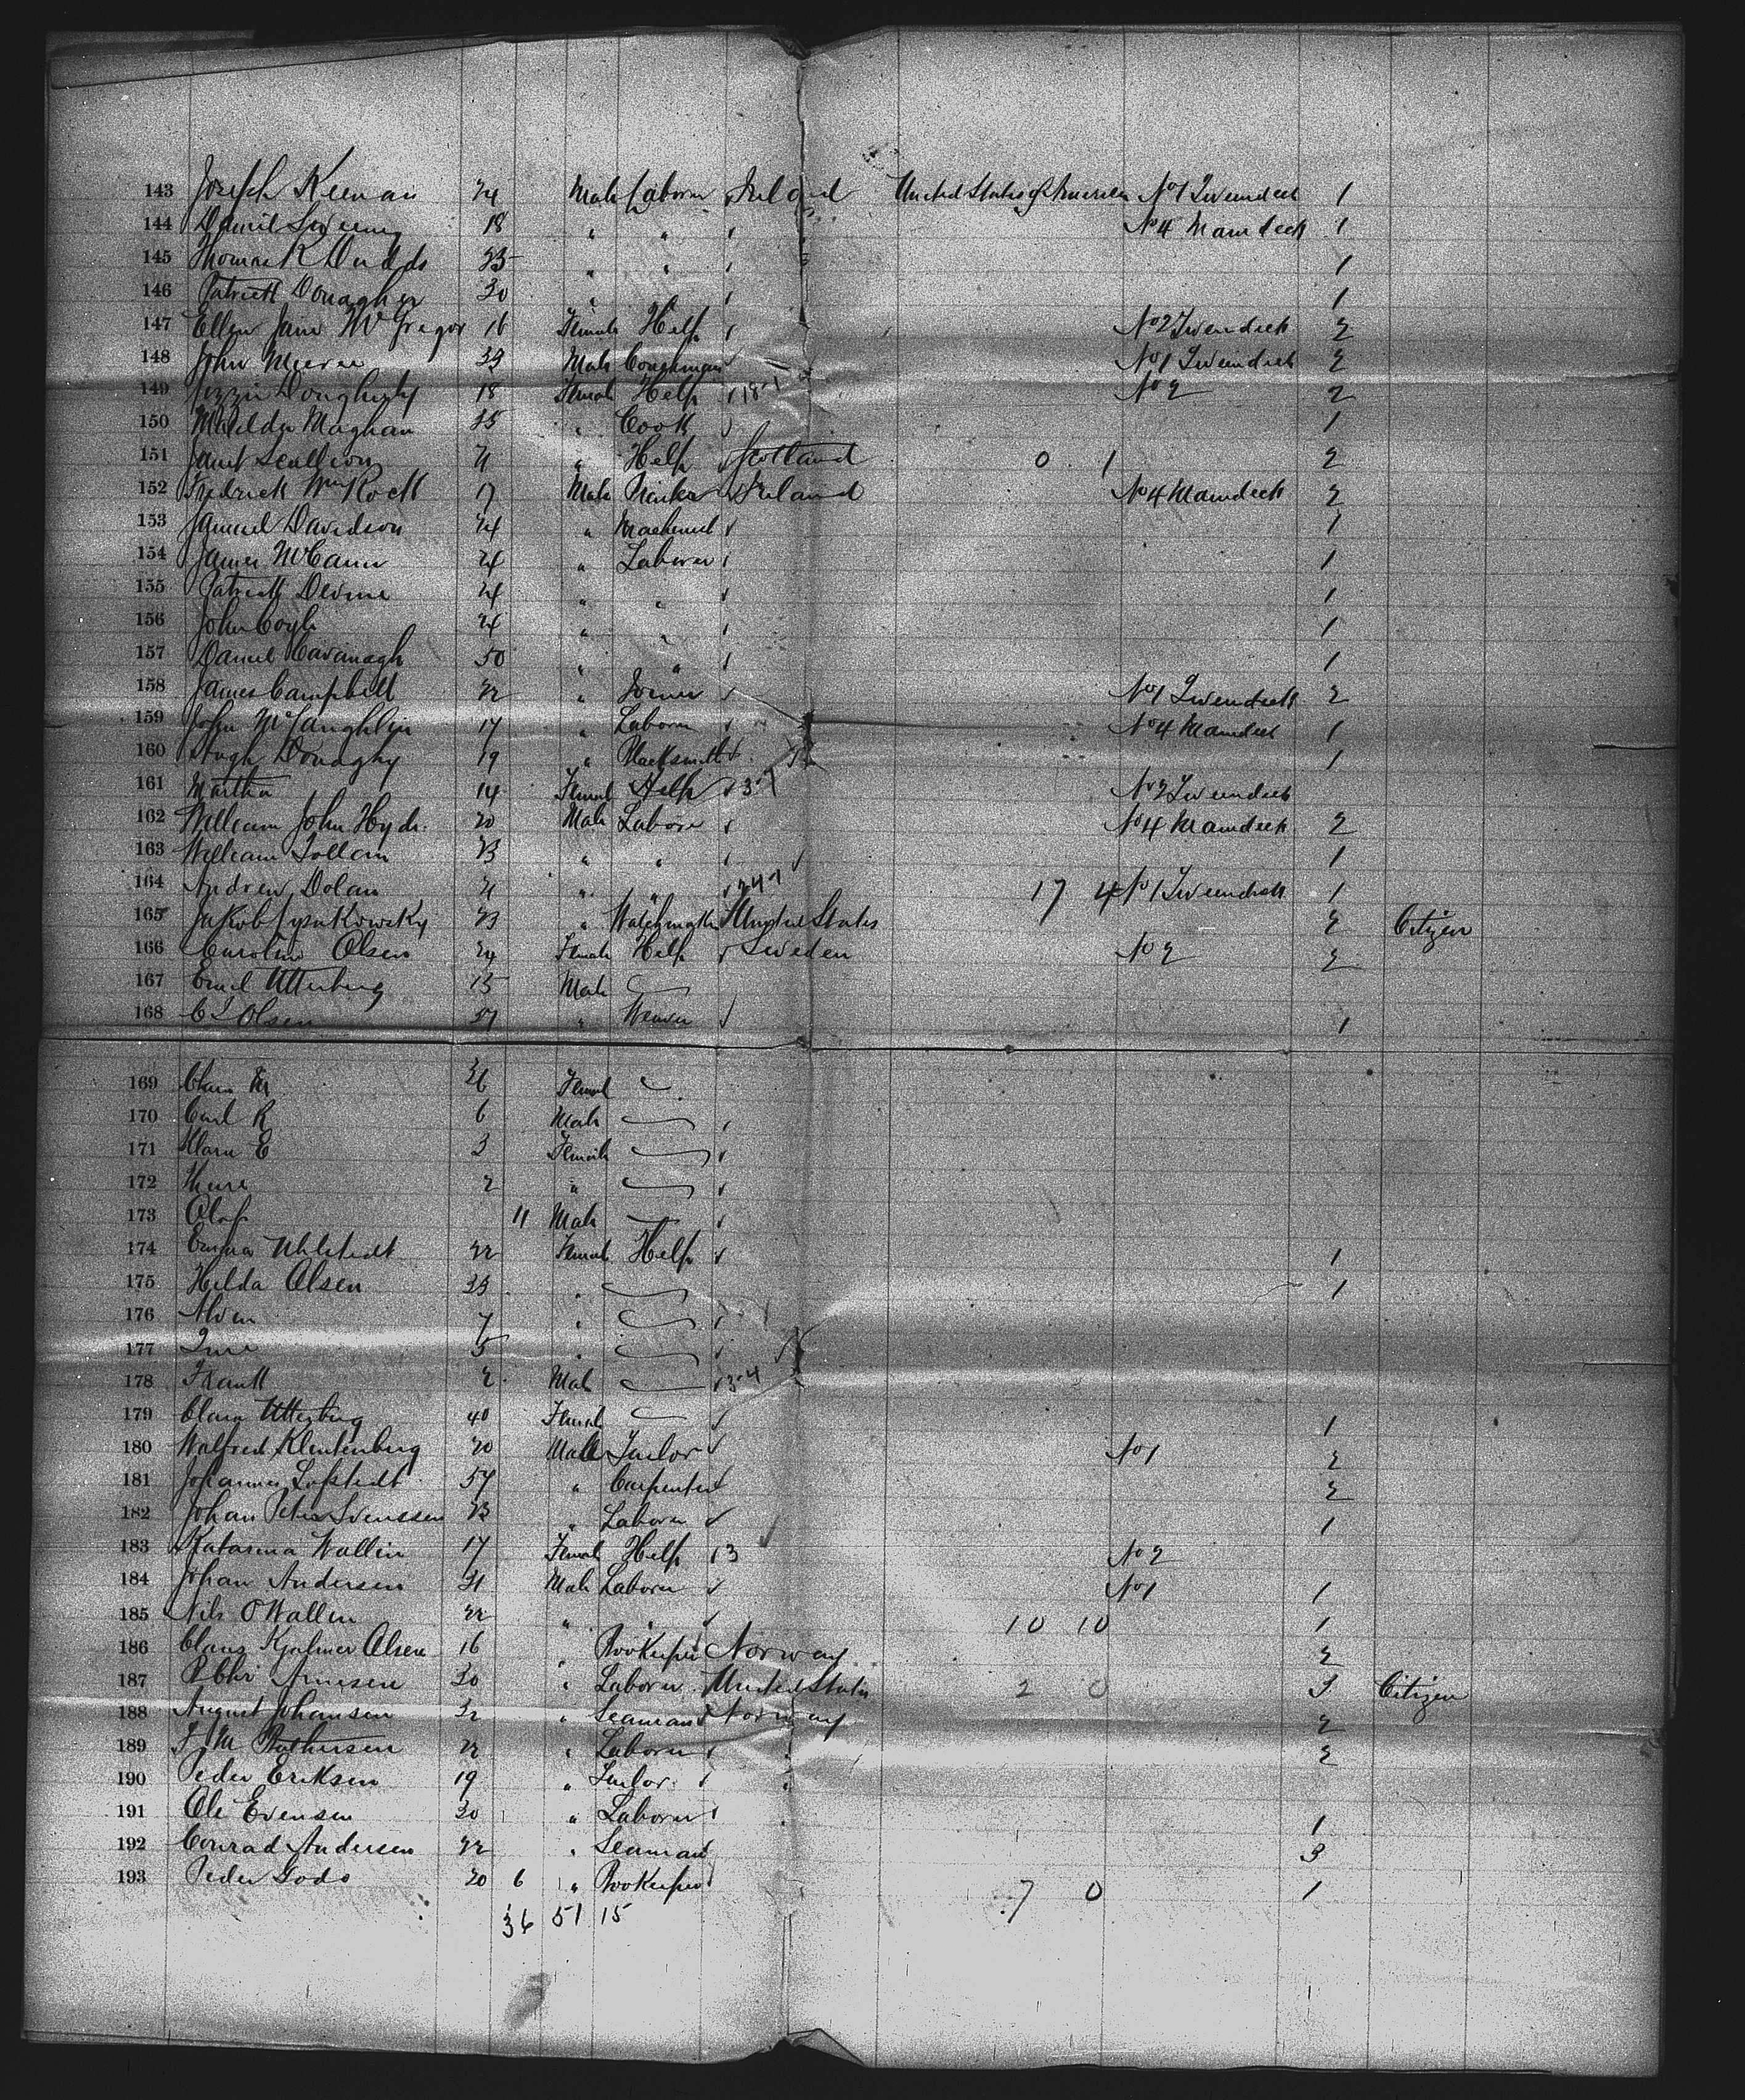 143 Joseph Keenan 24 Male Laborer Ireland United States of America No 1 Tweendeck 1
144 Daniel Sweeny 18 " " No 4 Maindeck 1
145 Thomas K Dudds " " 1
146 Patrick Donagher 30 " 1
147 Ellen Jane McGregor 16 Female Help No 2 Tweendeck 2
148 John 33 Male Coachman No 1 Tweendeck 2
149 Lizzie Dougherty 18 Female Help 18-1 No 2 2
150 Matilda Maghan 35 " Cook 1
151 Janet Scullion 21 " Help Scotland 0 1 2
152 Fredrick Wm Rock 17 Male Ireland No 4 Maindeck 2
153 Samuel Davidson 24 " Machinist 1
154 James McCann 24 " Laborer 1
155 Patrick Devine 24 " " 1
156 John Coyle 24 " " 1
157 Daniel Cavanagh 50 " " 1
158 James Campbell 22 " Joiner No 1 Tweendeck 2
159 John McLaughlin 17 " Laborer No 4 Maindeck 1
160 Hugh Donaghy 19 " Blacksmith 1
161 Martha 14 Female Help 3-7 No 2 Tweendeck
162 William John Hyde 20 Male Laborer No 4 Maindeck 2
163 William 23 " " 1
164 Andrew Dolan 21 " " 24-1 17 4 No 1 Tweendeck 1
165 Jakob 23 " United States 2 Citizen
166 Carolin Olsen 24 Female Help Sweden No 2 2
167 Emil Utterberg 15 Male
168 Olsen 37 " Weaver 1
169 36 Female
170 Carl R 6 Male
171 Klara E 3 Female
172 Thure 2 "
173 Olof 11 Male
174 Emma Uhlstedt 22 Female Help 1
175 Hilda Olsen 33 " 1
176 7 "
177 5 "
178 Frank 2 Male 3-4
179 Clara Utterberg 40 Female 1
180 Walfred Klintenberg 20 Male Tailor No 1 2
181 Johannes Lofstedt 54 " Carpenter 2
182 Johan Peter Svenssen 23 " Laborer 1
183 Katarina Wallin 17 Female Help 3 No 2
184 Johan Andersen 31 Male Laborer No 1 1
185 Nils O Wallin 22 " " 10 10 1
186 Claus Hjalmer Olsen 16 " Bookeeper Norway 2
187 30 " Laborer United States 2 0 Citizen
188 August Johansen 32 " Seaman Norway 2
189 22 " Laborer 2
190 Peder Eriksen 19 " Tailor "
191 Ole Evensen 30 " Laborer " 1
192 Conrad Andersen 22 " Seaman 3
193 Peder Godo 20 6 " Bookeeper 7 0 1
36 51 15